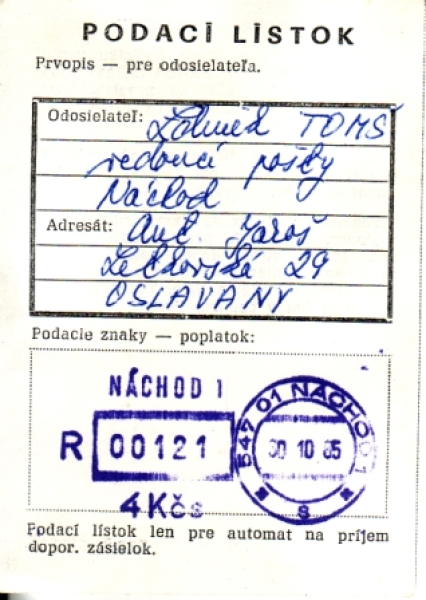 PODACÍ LÍSTOK
Prvopis — pre odosielateľa.
Odosielateľ: Zdeněk TOMŠ
vedoucí pošty
Náchod
Adresát: Ant. Jaroš
29
OSLAVANY
Podacie znaky — poplatok:
NÁCHOD 1
R 00121
4 Kčs
547 01 NÁCHOD 1
30 10 85
s
Podací lístok len pre automat na príjem
dopor. zásielok.